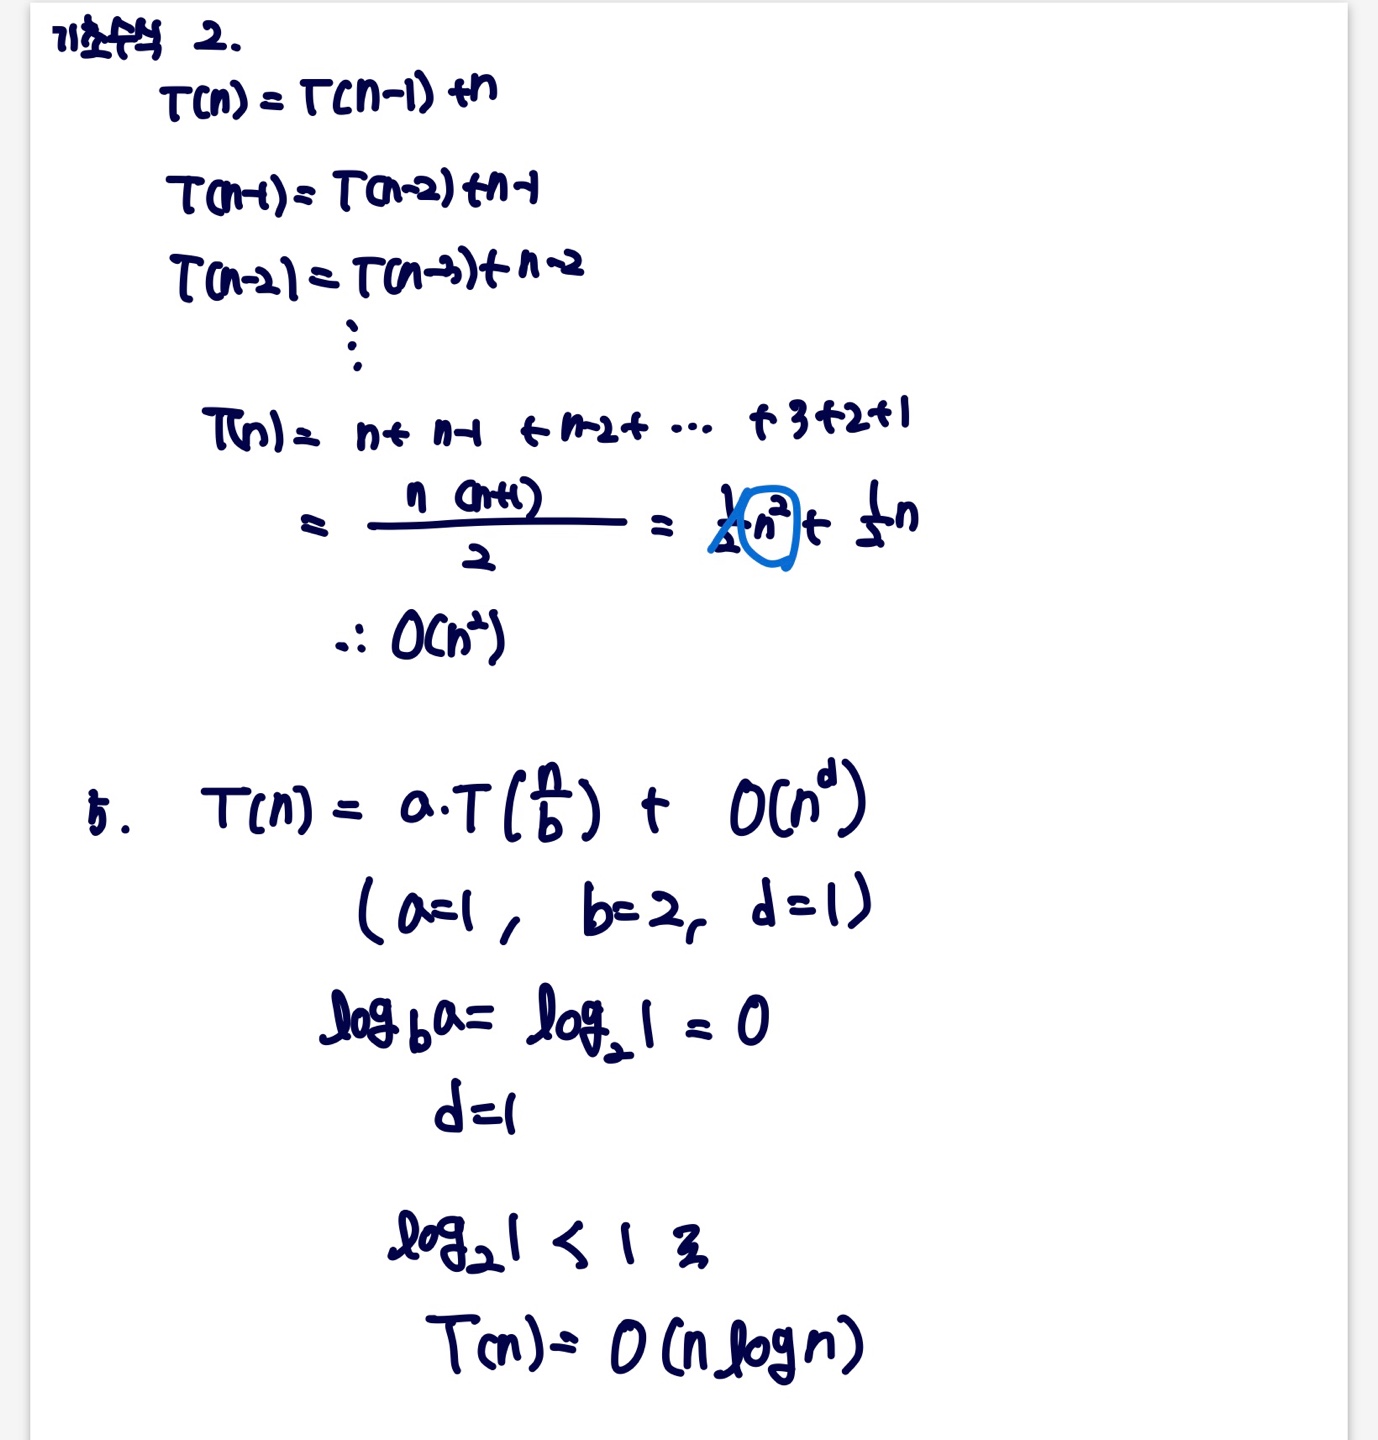 기초수식 2.
T(n) = T(n-1) +n
T(n-1) = T(n-2) +n-1
T(n-2) = T(n-3) + n-2
⋮
T(n) = n + n-1 + n-2 + ... + 3+2+1
= n (n+1) / 2 = 1/2 n² + 1/2 n
∴ O(n²)
5. T(n) = a·T(n/b) + O(n^d)
(a=1, b=2, d=1)
log_b a = log₂ 1 = 0
d=1
log₂ 1 < 1
T(n) = O(n log n)